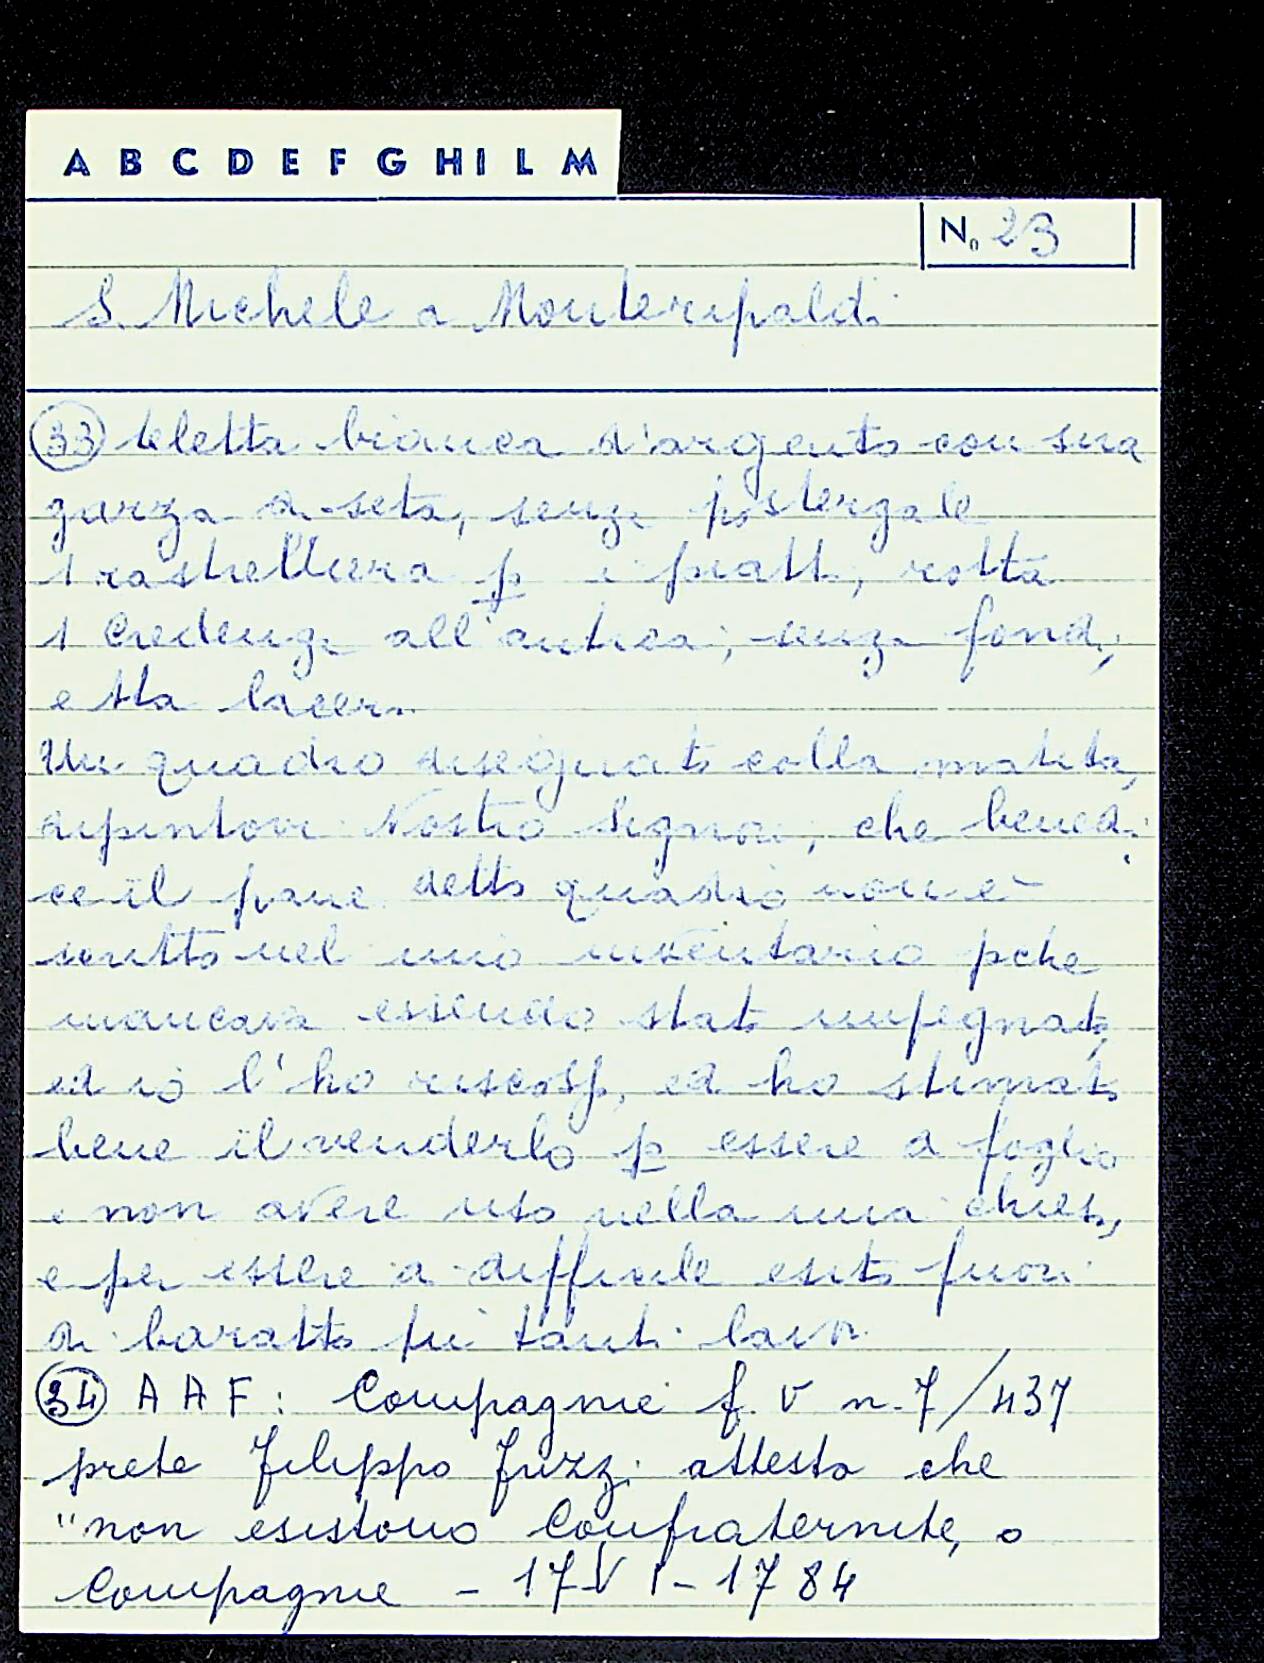 A B C D E F G H I L M
No 23
S. Michele a Monteripaldi
(33) teletta bianca d'argento con sua
garza di seta, senza postergale
1 rastrelliera p i piatti, rotta
1 Credenza all'antica, senza fondi,
e tta lacera
Un quadro disegnato colla matita,
dipintovi Nostro Signore, che benedi
ce il pane detto quadro non è
scritto nel mio inventario pche
mancava essendo stato impegnato,
ed io l'ho riscosso, ed ho stimato
bene il venderlo p essere di foglio
e non avere uso nella mia chiesa,
e per essere di difficile esito fuori
di baratto tanti
(34) A A F: Compagnie f. V n. 7/437
prete Filippo Fuzzi attesta che
"non esistono Confraternite, o
Compagnie - 17 VI - 1784